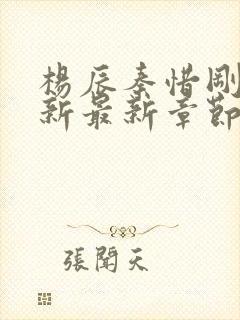 楊辰秦惜剛
新最新章節
張聞天